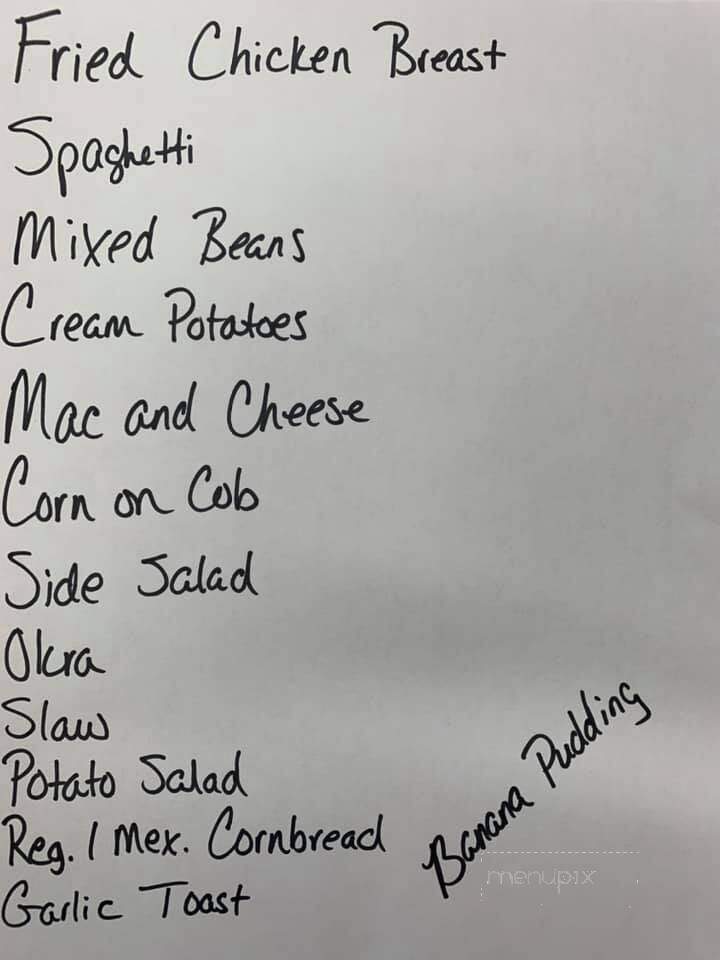 Fried Chicken Breast
Spaghetti
Mixed Beans
Cream Potatoes
Mac and Cheese
Corn on Cob
Side Salad
Okra
Slaw
Potato Salad
Reg. / Mex. Cornbread
Garlic Toast
Banana Pudding
menupix